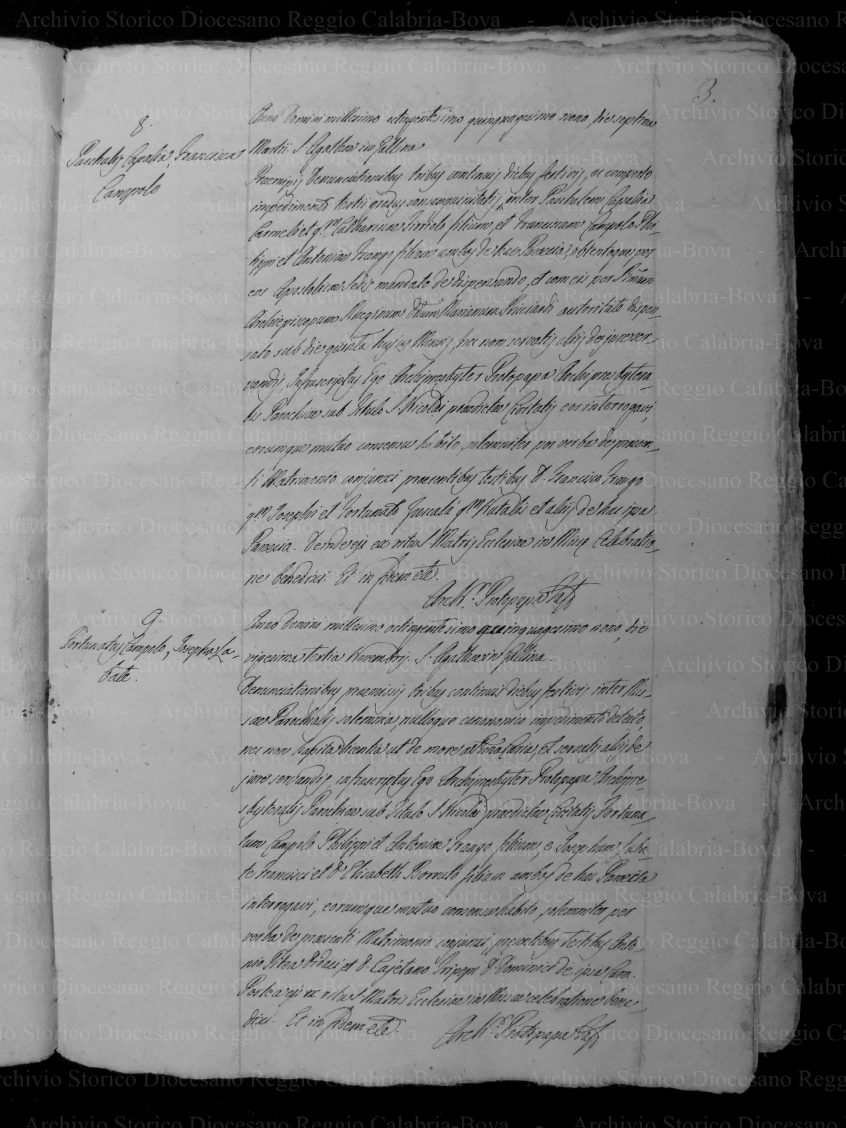 3.
8
Paschalis Capialbi, Francisca
Campolo
Anno Domini millesimo octingentesimo quinquagesimo nono, die septima
Martii. S. Agathae in Gallina
Praemissis denunciationibus tribus continuis diebus festivis, ac comperto
impedimento tertii gradus consanguinitatis, inter Paschalem
Carmeli et qm Catharinae filium, et Franciscam Campolo Phi-
lippi et Antoniae Freago filiam ambos de hac Paroecia, obtentoque per
eos Apostolicae Sedis mandato de dispensando, et cum eis per
Archiepiscopum Rheginum Marianum Ricciardi autoritate dispen-
sato sub die quinta hujus Mensis, nec non servatis aliis de jure ser-
vandis, Infrascriptus Ego Archipresbyter Protopapa Archipresbytera-
lis Paroeciae sub Titulo S. Nicolai praedictae Civitatis eos interrogavi,
eorumque mutuo consensu habito, solemniter per verba de praesen-
ti Matrimonio conjunxi praesentibus testibus D. Francisco Freago
qm Josephi et Fortunato qm Natalis et aliis de hac ipsa
Paroecia. Deinde eis ex ritu S. Matris Ecclesiae in Missae Celebratio-
ne benedixi. Et in fidem etc.
Archr. Protopapa
9
Fortunatus Campolo, Josepha La-
bate.
Anno Domini millesimo octingentesimo quinquagesimo nono, die
vigesima tertia Novembris. S. Agathae in Gallina
Denunciationibus praemissis tribus continuis diebus festivis inter Mis-
sae Parochialis solemnia, nulloque canonico impedimento detecto
nec non habita licentia ut de more a Curia, et servatis aliis de
jure servandis, infrascriptus Ego Archipresbyter Protopapa Archipre-
sbyteralis Paroeciae sub Titulo S. Nicolai praedictae Civitatis Fortuna-
tum Campolo Philippi et Antoniae Freago filium, et Josepham Laba-
te Francisci et D. Elisabeth Borruto filiam ambos de hac Paroecia
interrogavi, eorumque mutuo consensu habito solemniter per
verba de praesenti Matrimonio conjunxi, praesentibus testibus Anto-
nio Pitea Didaci, et D. Cajetano Grippi D. Dominici de ipsa
Postea eis ex ritu S. Matris Ecclesiae in Missae celebratione bene-
dixi. Et in fidem etc.
Archr. Protopapa
Archivio Storico Diocesano Reggio Calabria-Bova